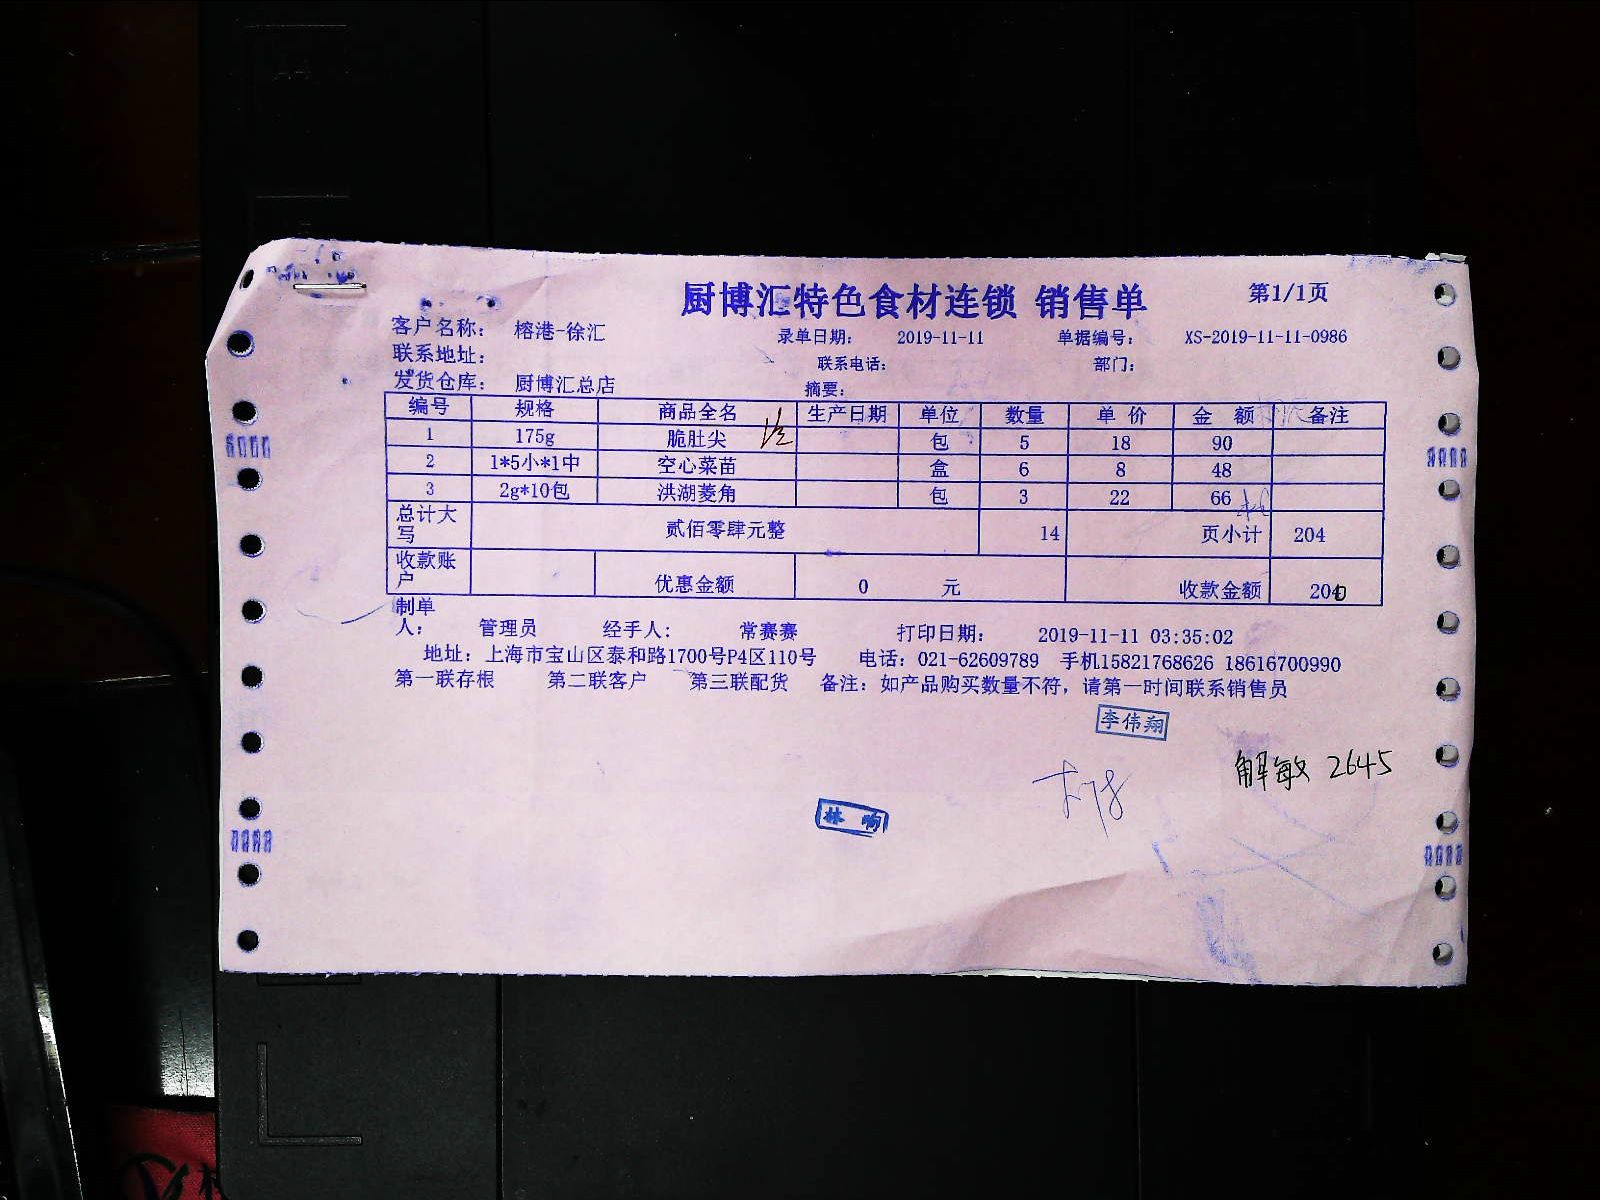 厨博汇特色食材连锁 销售单 第1/1页
客户名称： 榕港-徐汇 录单日期： 2019-11-11 单据编号： XS-2019-11-11-0986
联系地址： 联系电话： 部门：
发货仓库： 厨博汇总店 摘要：
编号 规格 商品全名 生产日期 单位 数量 单 价 金 额 备注
1 175g 脆肚尖 包 5 18 90
2 1*5小*1中 空心菜苗 盒 6 8 48
3 2g*10包 洪湖菱角 包 3 22 66
总计大写 贰佰零肆元整 14 页小计 204
收款账户 优惠金额 0 元 收款金额 204
制单人： 管理员 经手人： 常赛赛 打印日期： 2019-11-11 03:35:02
地址：上海市宝山区泰和路1700号P4区110号 电话：021-62609789 手机15821768626 18616700990
第一联存根 第二联客户 第三联配货 备注：如产品购买数量不符，请第一时间联系销售员
李伟翔
解敏 2645
林 响